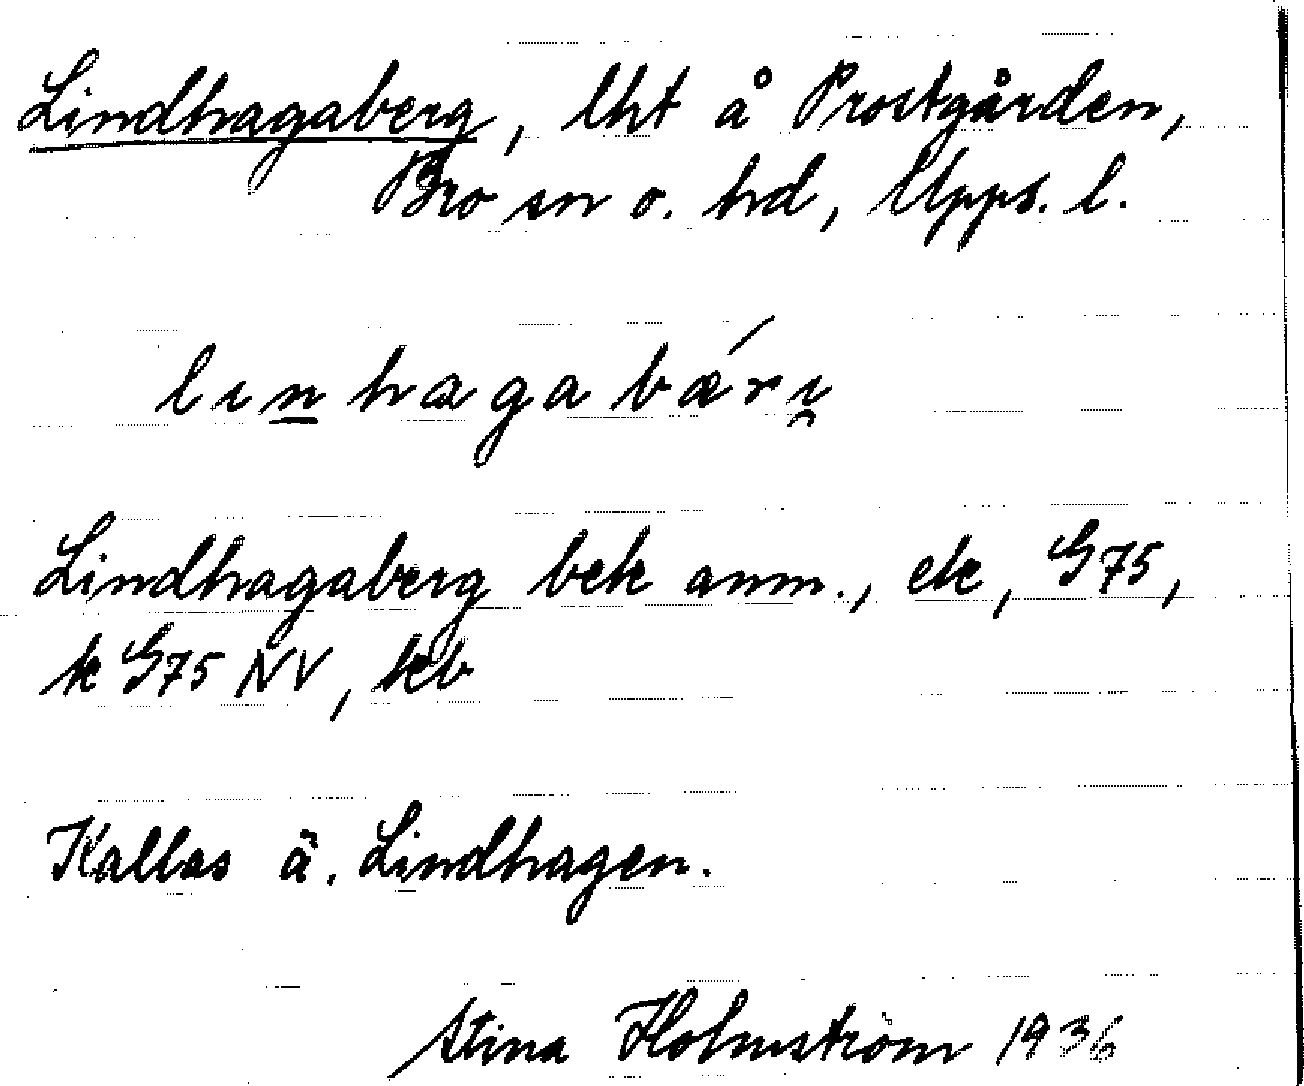 Lindhagaberg, lht å Prostgården,
Bro sn o. hd, Upps. l.
lın̲hagabǽrı̯
Lindhagaberg bek anm., ek, G75,
k G75 NV, kb
Kallas ä. Lindhagen.
Stina Holmström 1936